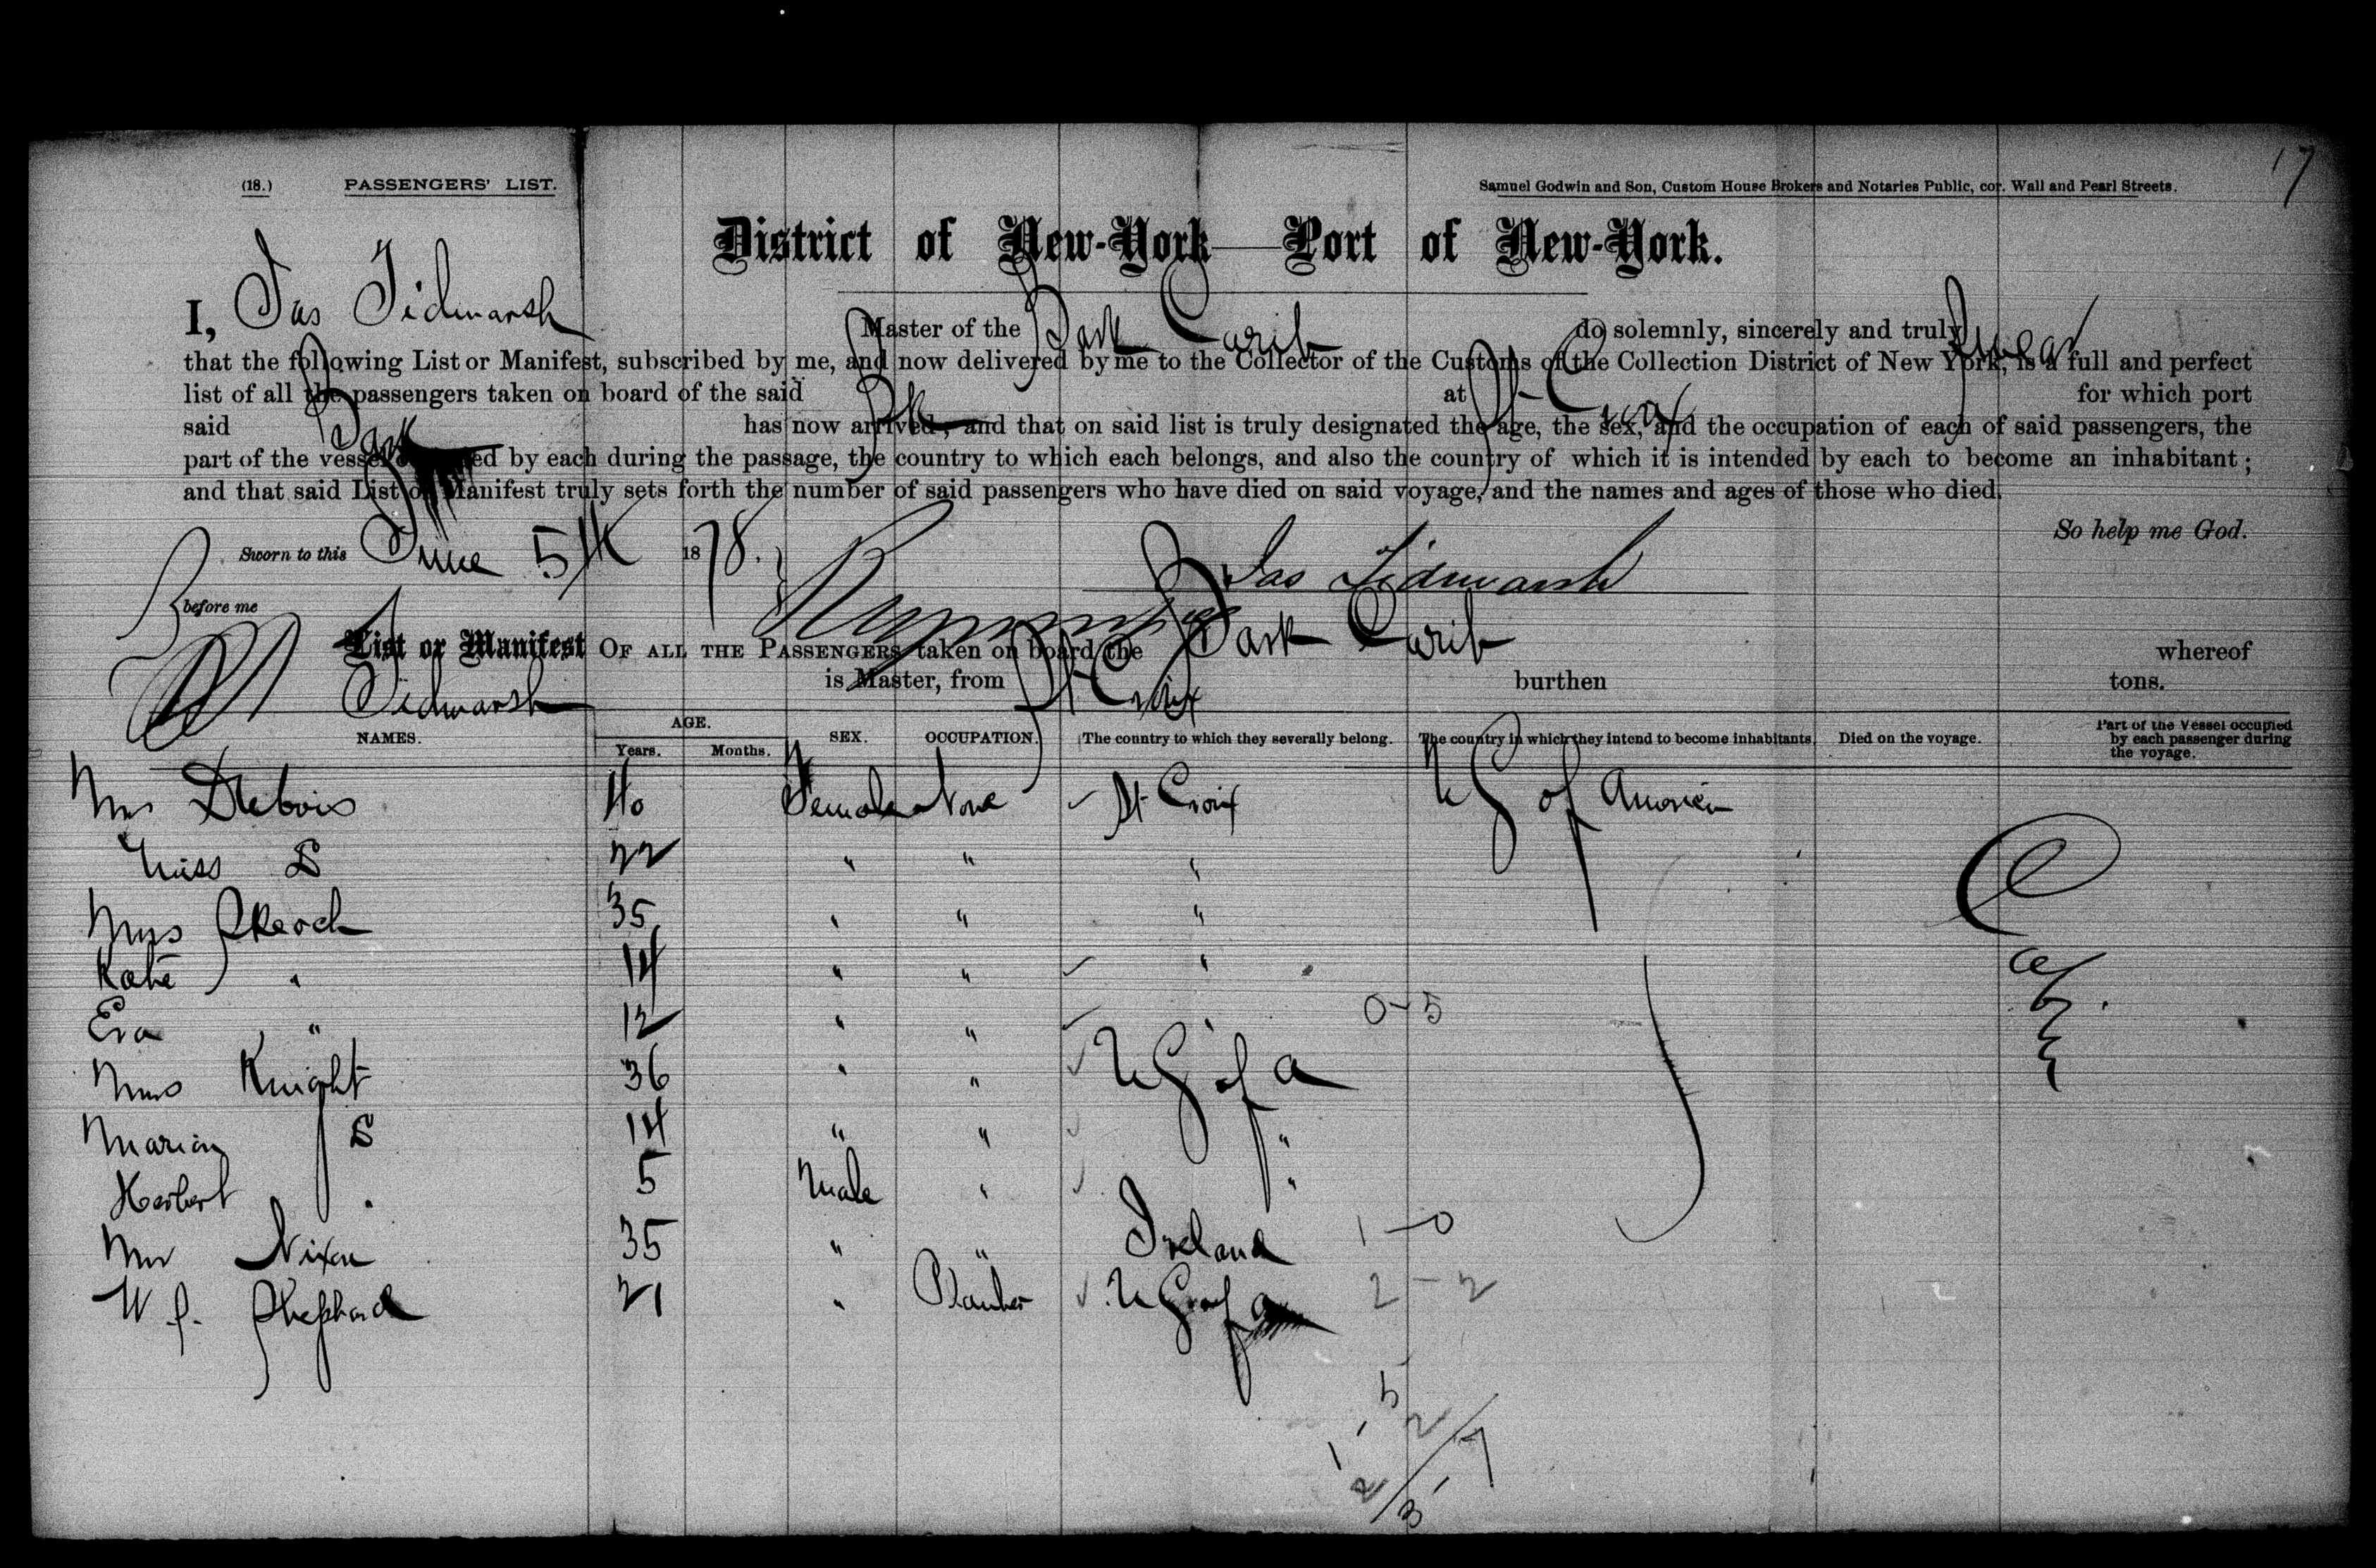 17
(18.) PASSENGERS' LIST. Samuel Godwin and Son, Custom House Brokers and Notaries Public, cor. Wall and Pearl Streets.
District of New-York—Port of New-York.
I, Jas Tidmarsh Master of the Bark Carib do solemnly, sincerely and truly swear
that the following List or Manifest, subscribed by me, and now delivered by me to the Collector of the Customs of the Collection District of New York, is a full and perfect
list of all the passengers taken on board of the said Bk at St Croix for which port
said Bark has now arrived; and that on said list is truly designated the age, the sex, and the occupation of each of said passengers, the
part of the vessel occupied by each during the passage, the country to which each belongs, and also the country of which it is intended by each to become an inhabitant;
and that said List or Manifest truly sets forth the number of said passengers who have died on said voyage, and the names and ages of those who died.
So help me God.
Sworn to this June 5th 1878. Jas Tidmarsh
before me
List or Manifest OF ALL THE PASSENGERS taken on board the Bark Carib whereof
Tidmarsh is Master, from St Croix burthen tons.
NAMES. AGE. Years. Months. SEX. OCCUPATION. The country to which they severally belong. The country in which they intend to become inhabitants. Died on the voyage. Part of the Vessel occupied by each passenger during the voyage.
Mrs Debois 40 Female None St Croix U S of America
Miss D 22 " " "
Mrs Skeoch 35 " " "
Kate " 14 " " "
Eva " 12 " " " 0-5
Mrs Knight 36 " " U S of A
Marian D 14 " " "
Herbert " 5 Male " "
Mr Nixon 35 " " Ireland 1-0
W. J. Shephard 21 " Planter U S of A 2-2
Cabin
5
1 2
1 7
2
3